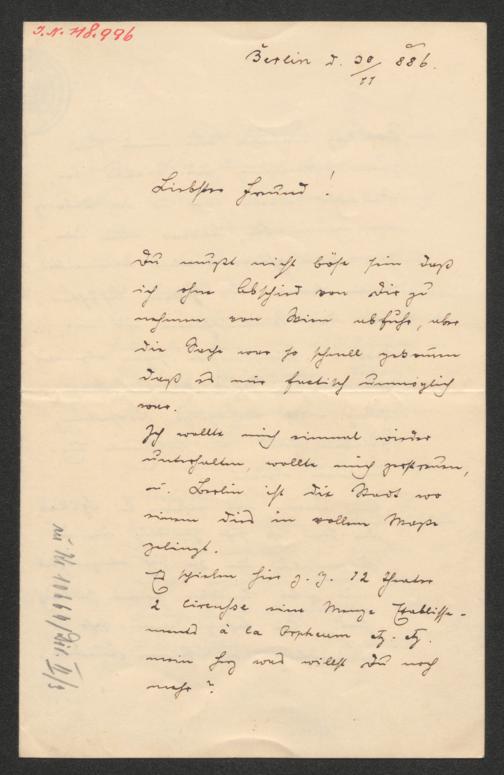 I.N. 118.996
Berlin d. 30/11 886.
Liebster Freund!
Du mußt nicht böse sein daß
ich ohne Abschied von Dir zu
nehmen von Wien abfuhr, aber
die Sache war so schnell gekommen
daß es mir factisch unmöglich
war.
Ich wollte mich einmal wieder
unterhalten, wollte mich zerstreuen,
u. Berlin ist die Stadt wo
einem dies in vollem Maße
gelingt.
Es spielen hier z. Z. 12 Theater
2 Circusse eine Menge Etablisse-
ments à la Orpheum etz. etz.
mein Herz was willst Du noch
mehr?